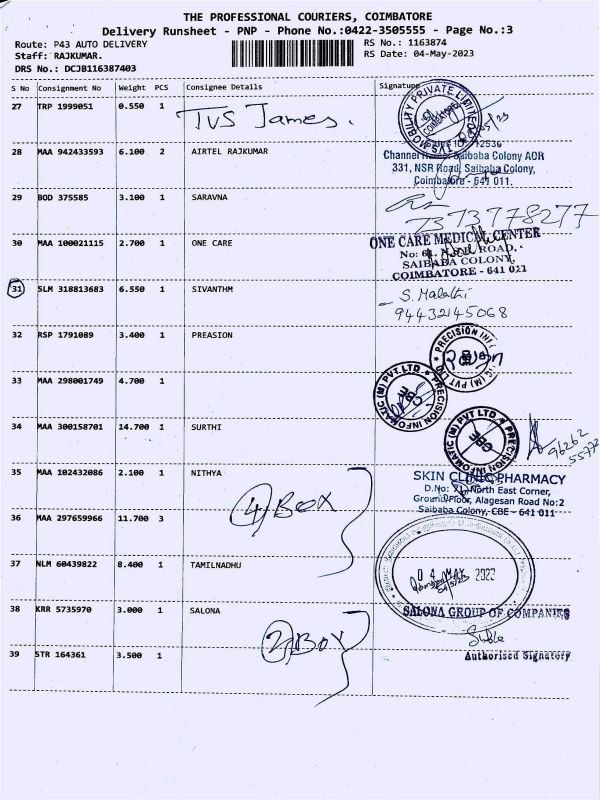 THE PROFESSIONAL COURIERS, COIMBATORE
Delivery Runsheet - PNP - Phone No.:0422-3505555 - Page No.:3
Route: P43 AUTO DELIVERY RS No.: 1163874
Staff: RAJKUMAR. RS Date: 04-May-2023
DRS No.: DCJB116387403
S No Consignment No Weight PCS Consignee Details Signature
27 TRP 1999051 0.550 1 TVS James.
TVS MOBILITY PRIVATE LIMITED
COIMBATORE
28 MAA 942433593 6.100 2 AIRTEL RAJKUMAR
Saibaba Colony AOR
331, NSR Road, Saibaba Colony,
Coimbatore - 641 011.
29 BOD 375585 3.100 1 SARAVNA
7373778277
30 MAA 100021115 2.700 1 ONE CARE
ONE CARE MEDICAL CENTER
No: 61, N.S.R. ROAD,
SAIBABA COLONY,
COIMBATORE - 641 011
31 SLM 318813683 6.550 1 SIVANTHM
S. Malathi
9443245068
32 RSP 1791089 3.400 1 PREASION
33 MAA 298001749 4.700 1
PRECISION INFOMATIC (M) PVT LTD
34 MAA 300158701 14.700 1 SURTHI
PRECISION INFOMATIC (M) PVT LTD
96262
55772
35 MAA 102432086 2.100 1 NITHYA
SKIN CLINIC PHARMACY
D.No: 71, North East Corner,
Ground Floor, Alagesan Road No:2
Saibaba Colony, CBE - 641 011
4 Box
36 MAA 297659966 11.700 3
37 NLM 60439822 8.400 1 TAMILNADHU
04 MAY 2023
38 KRR 5735970 3.000 1 SALONA
SALONA GROUP OF COMPANIES
2 Box
39 STR 164361 3.500 1
Authorised Signatory